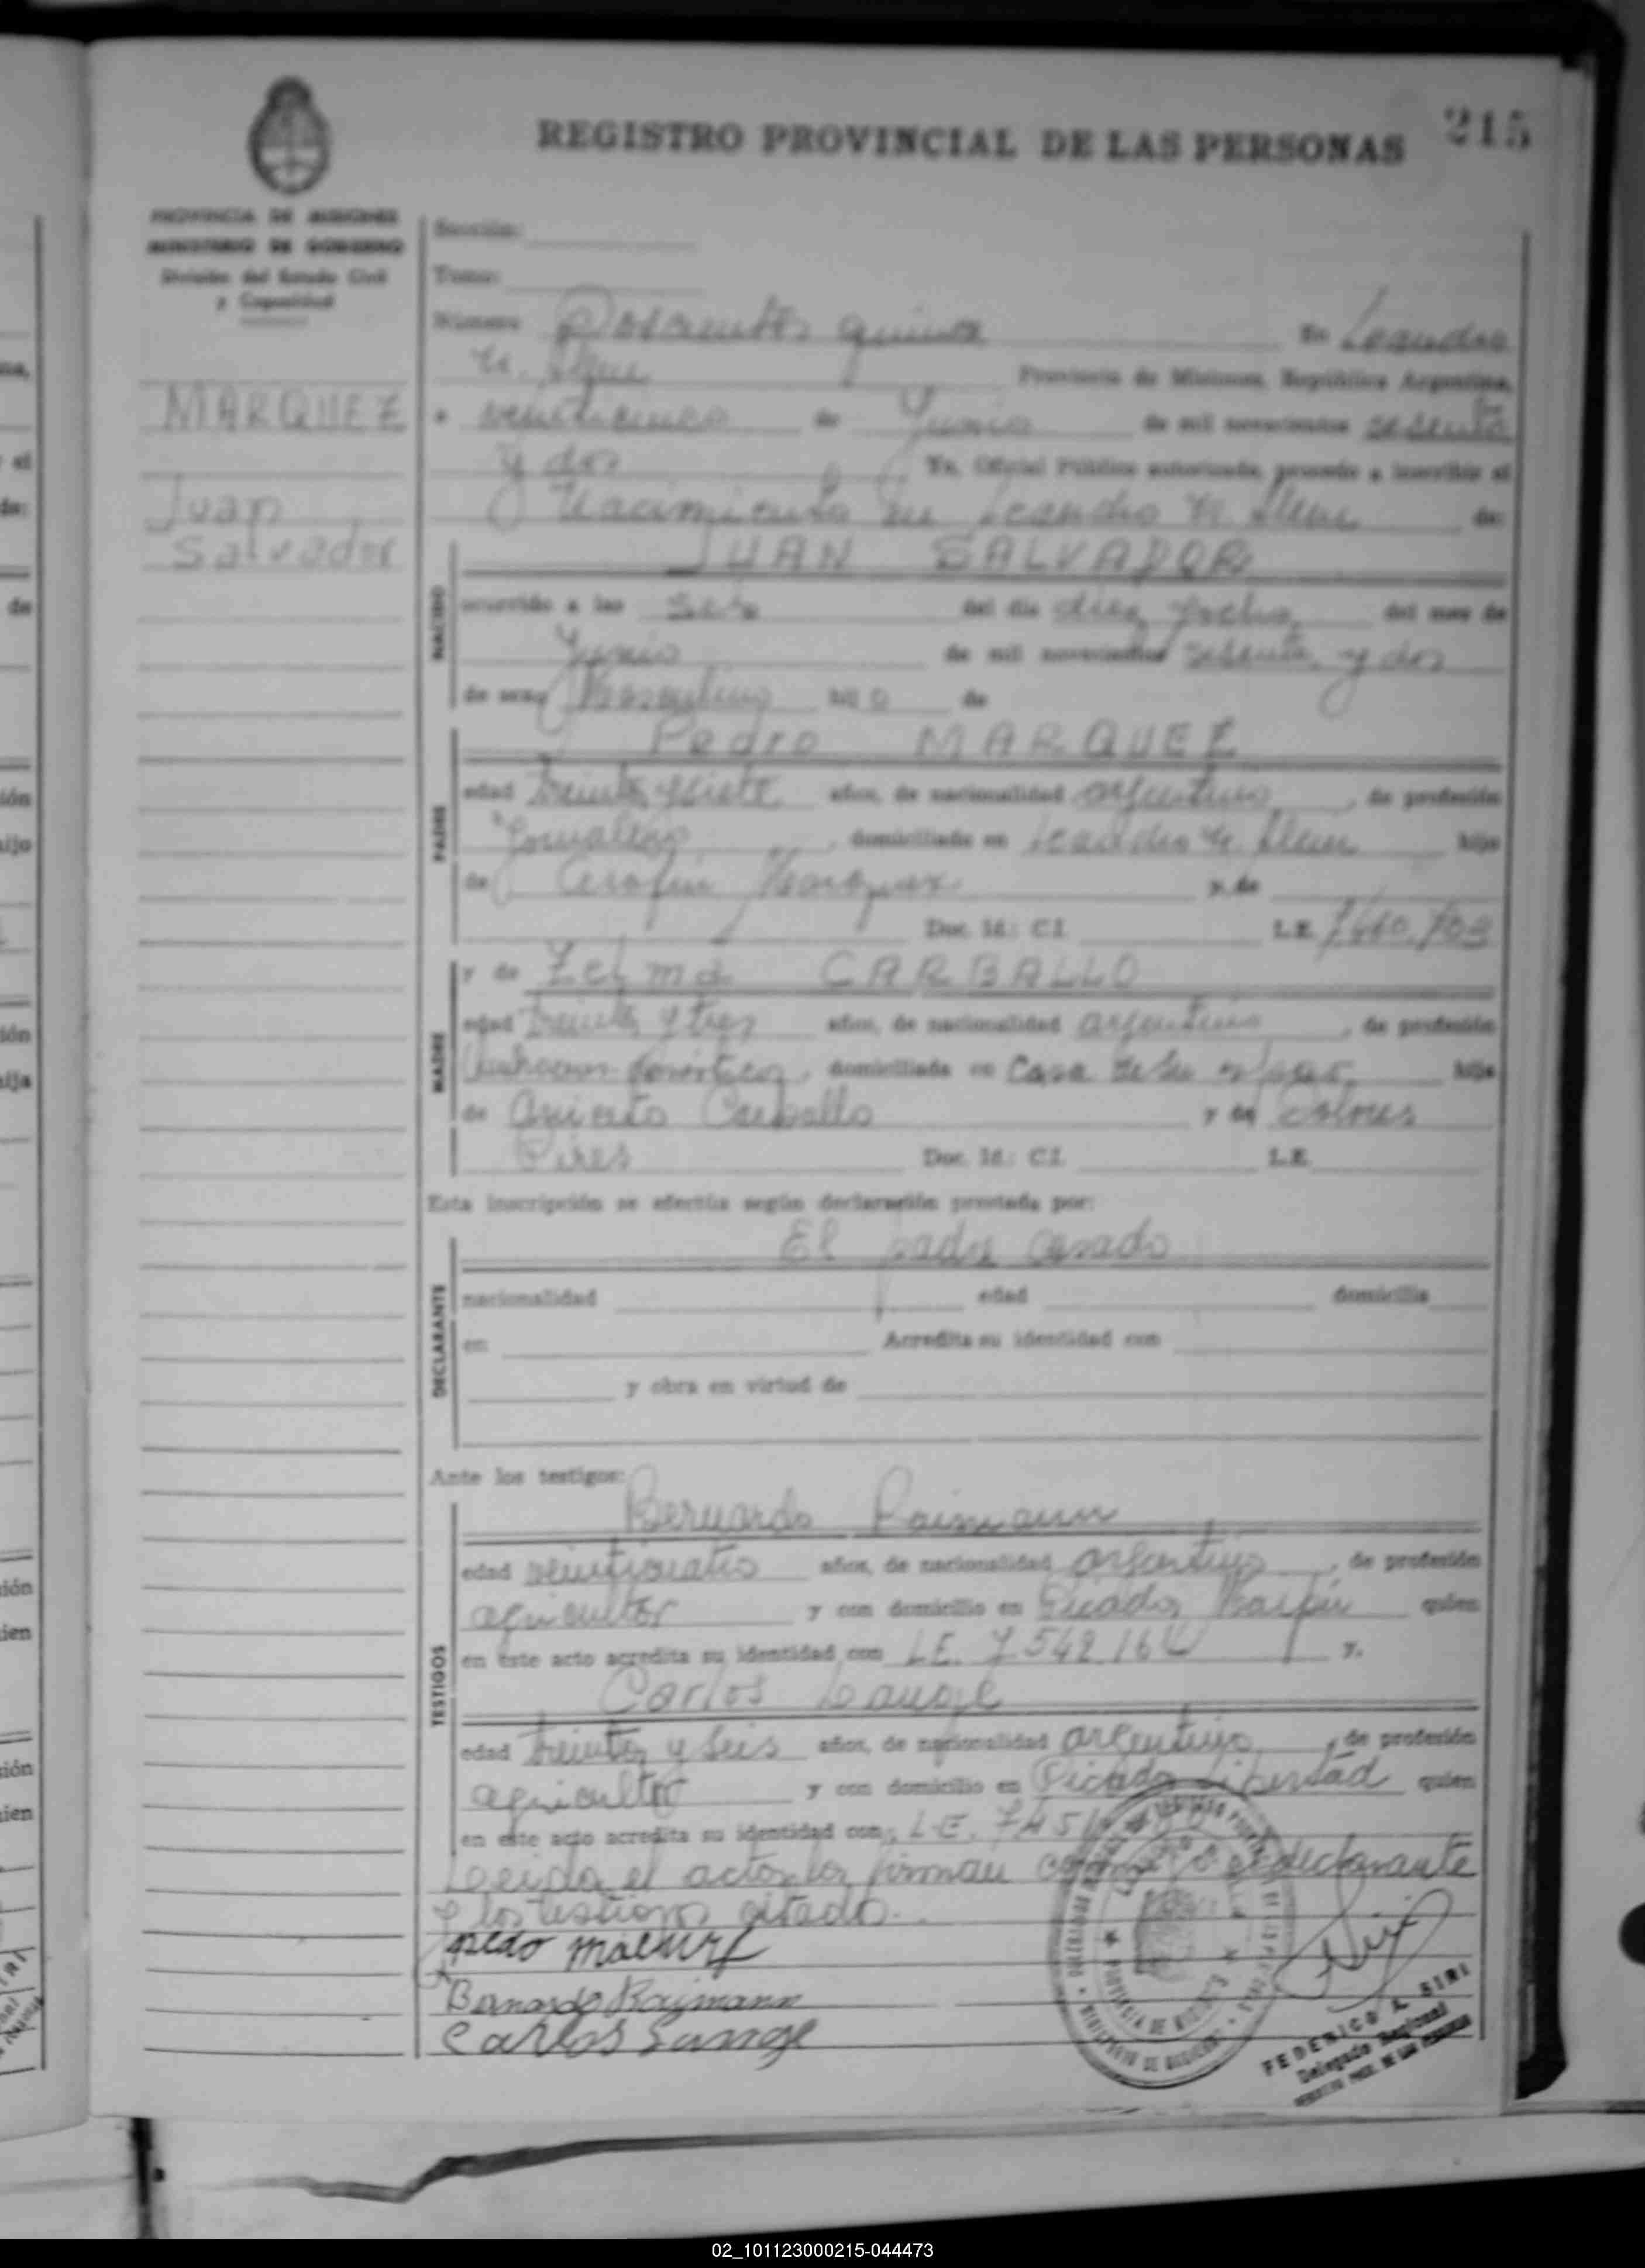 215
REGISTRO PROVINCIAL DE LAS PERSONAS
PROVINCIA DE MISIONES
MINISTERIO DE GOBIERNO
División del Estado Civil
y Capacidad
MARQUEZ
Juan
Salvador
Sección:
Tomo:
Número Doscientos quince En Leandro
N. Alem Provincia de Misiones, República Argentina,
a veinticinco de Junio de mil novecientos sesenta
y dos Yo, Oficial Público autorizado, procedo a inscribir el
Nacimiento en Leandro N. Alem de:
JUAN SALVADOR
NACIDO
ocurrido a las del día diez y ocho del mes de
Junio de mil novecientos sesenta y dos
de sexo Masculino de
PADRE
Pedro MARQUEZ
edad treinta y siete años, de nacionalidad argentino, de profesión
Jornalero, domiciliado en Leandro N. Alem hijo
de Marquez y de
Doc. Id.: C.I. L.E.
MADRE
y de Zelma CARBALLO
edad treinta y tres años, de nacionalidad argentina, de profesión
domiciliada en Casa de su hija
de Carballo y de Dolores
Pires Doc. Id.: C.I. L.E.
Esta inscripción se efectúa según declaración prestada por:
DECLARANTE
El padre casado
nacionalidad edad domicilia
en Acredita su identidad con
y obra en virtud de
Ante los testigos:
TESTIGOS
Bernardo Raimann
edad veinticuatro años, de nacionalidad argentino, de profesión
agricultor y con domicilio en Picada Maipú quien
en este acto acredita su identidad con L.E. y.
Carlos Lange
edad treinta y seis años, de nacionalidad argentino, de profesión
agricultor y con domicilio en Picada Libertad quien
en este acto acredita su identidad con: L.E.
Leida el acta la firman declarante
y los testigos citado.
Bernardo Raimann
Carlos Lange
PROVINCIA DE MISIONES
FEDERICO A. SIRI
Delegado Regional
REGISTRO PROV. DE LAS PERSONAS
02_101123000215-044473